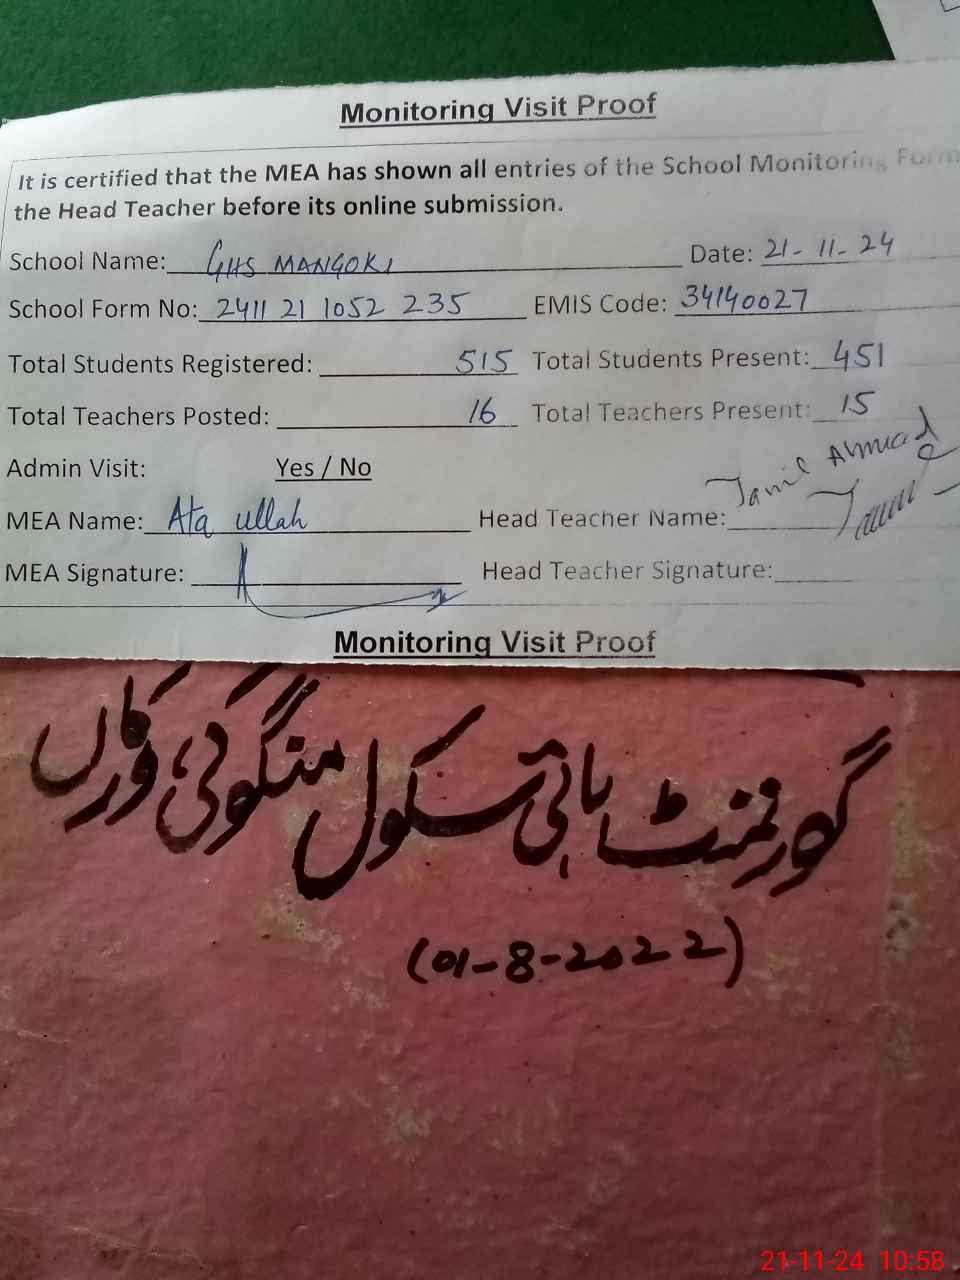 Monitoring Visit Proof
It is certified that the MEA has shown all entries of the School Monitoring Form
the Head Teacher before its online submission.
School Name: GHS MANGOKI Date: 21-11-24
School Form No: 2411 21 1052 235 EMIS Code: 34140027
Total Students Registered: 515 Total Students Present: 451
Total Teachers Posted: 16 Total Teachers Present: 15
Admin Visit: Yes / No
MEA Name: Ata ullah Head Teacher Name: Jamil Ahmad
MEA Signature: Head Teacher Signature:
Monitoring Visit Proof
گورنمنٹ ہائی سکول منگوکی ورکاں
(01-8-2022)
21-11-24 10:58